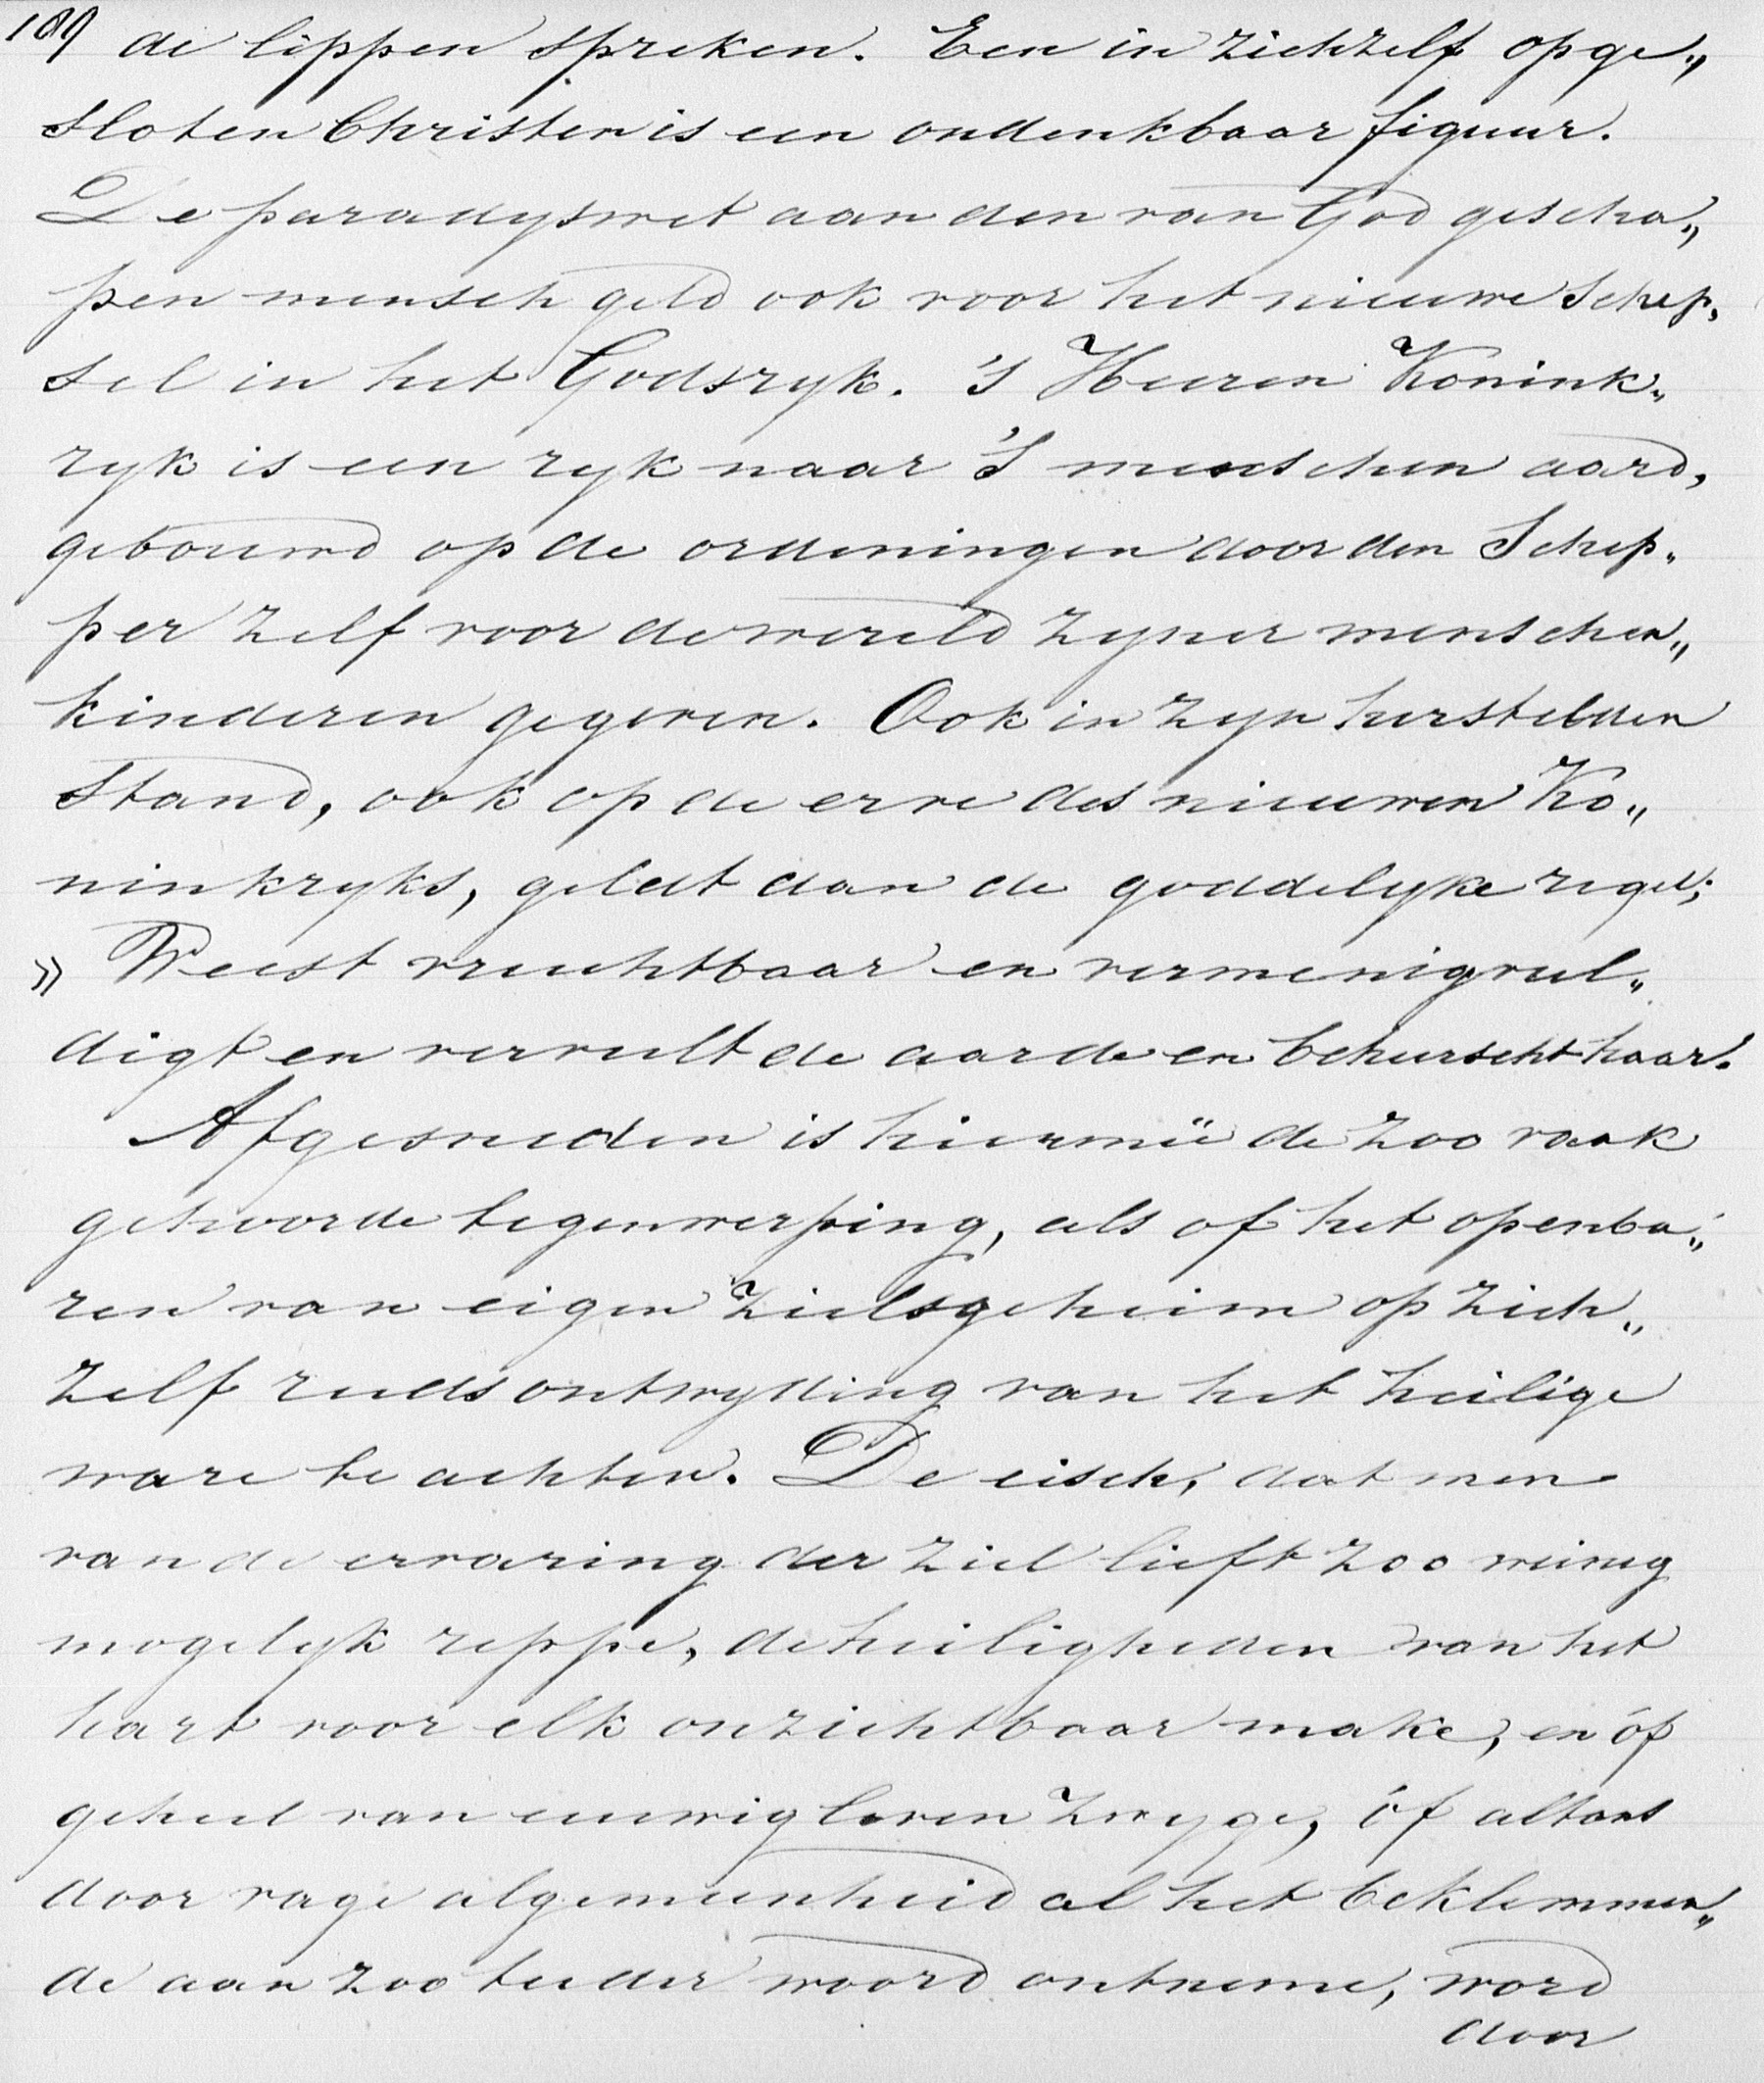 189 de lippen spreken. Een in zichzelf opge„
sloten Christen is een ondenkbaar figuur.
De paradyswet aan den van God gescha„
pen mensch geld ook voor het nieuwe schep„
sel in het Godsryk. 's Heeren Konink„
ryk is een ryk naar 's menschen aard,
gebouwd op de ordeningen door den Schep„
per zelf voor de wereld zyner menschen„
kinderen gegeven. Ook in zyn herstelden
stand, ook op de erve des nieuwen Ko„
ninkryks, geldt dan de goddelyke regel;
» Weest vruchtbaar en vermenigvul„
digt en vervult de aarde en beheerscht haar.
Afgesneden is hiermeê de zoo vaak
gehoorde tegenwerping, als of het openba„
ren van eigen zielsgeheim op zich„
zelf reeds ontwyding van het heilige
ware te achten. De eisch, dat men
van de ervaring der ziel lieft zoo weinig
mogelyk reppe, de heiligheden van het
hart voor elk onzichtbaar make, en óf
geheel van eeuwig leven zwyge, óf altans
door vage algemeenheid al het beklemmen„
de aan zoo teeder woord ontneme, word
door